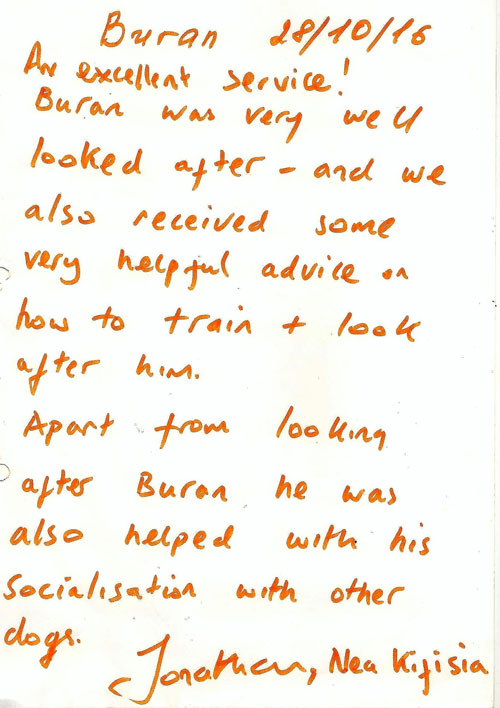 Buran 28/10/16
An excellent service!
Buran was very well
looked after - and we
also received some
very helpful advice on
how to train + look
after him.
Apart from looking
after Buran he was
also helped with his
socialisation with other
dogs.
Jonathan, Nea Kifisia